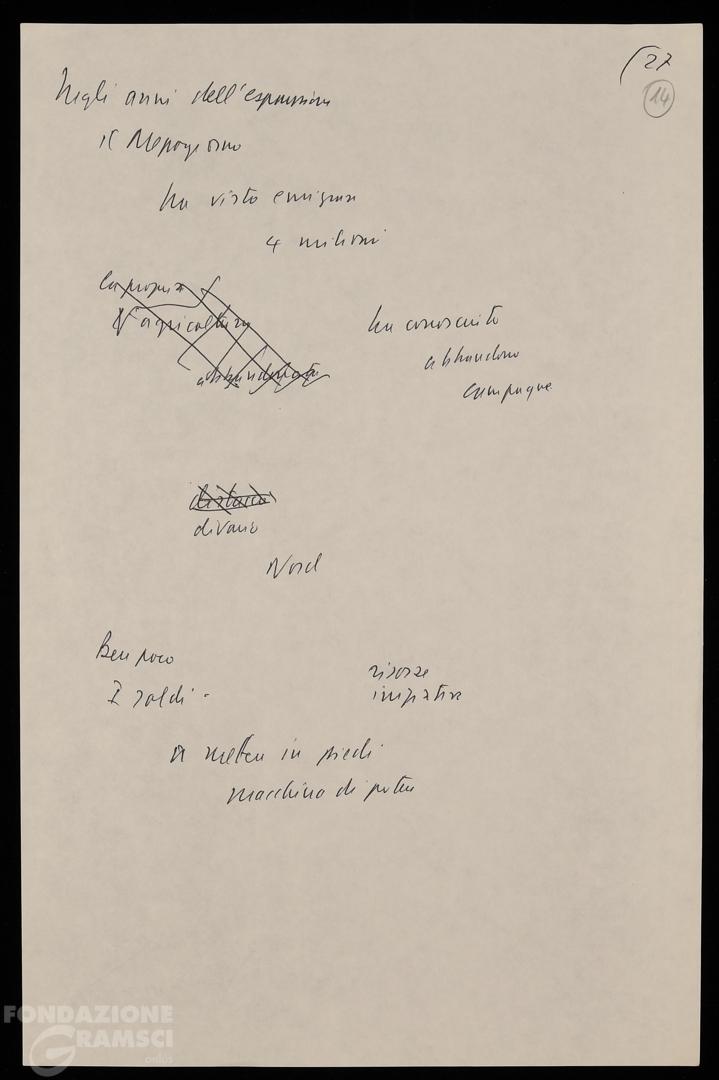 27
14
Negli anni dell'espansione
il Mezzogiorno
ha visto emigrare
4 milioni
la propria
l'agricoltura
abbandonata
ha conosciuto
abbandono
campagne
divario
Nord
Ben poco
I soldi -
risorse
in piedi
macchina di potere
FONDAZIONE
GRAMSCI
onlus